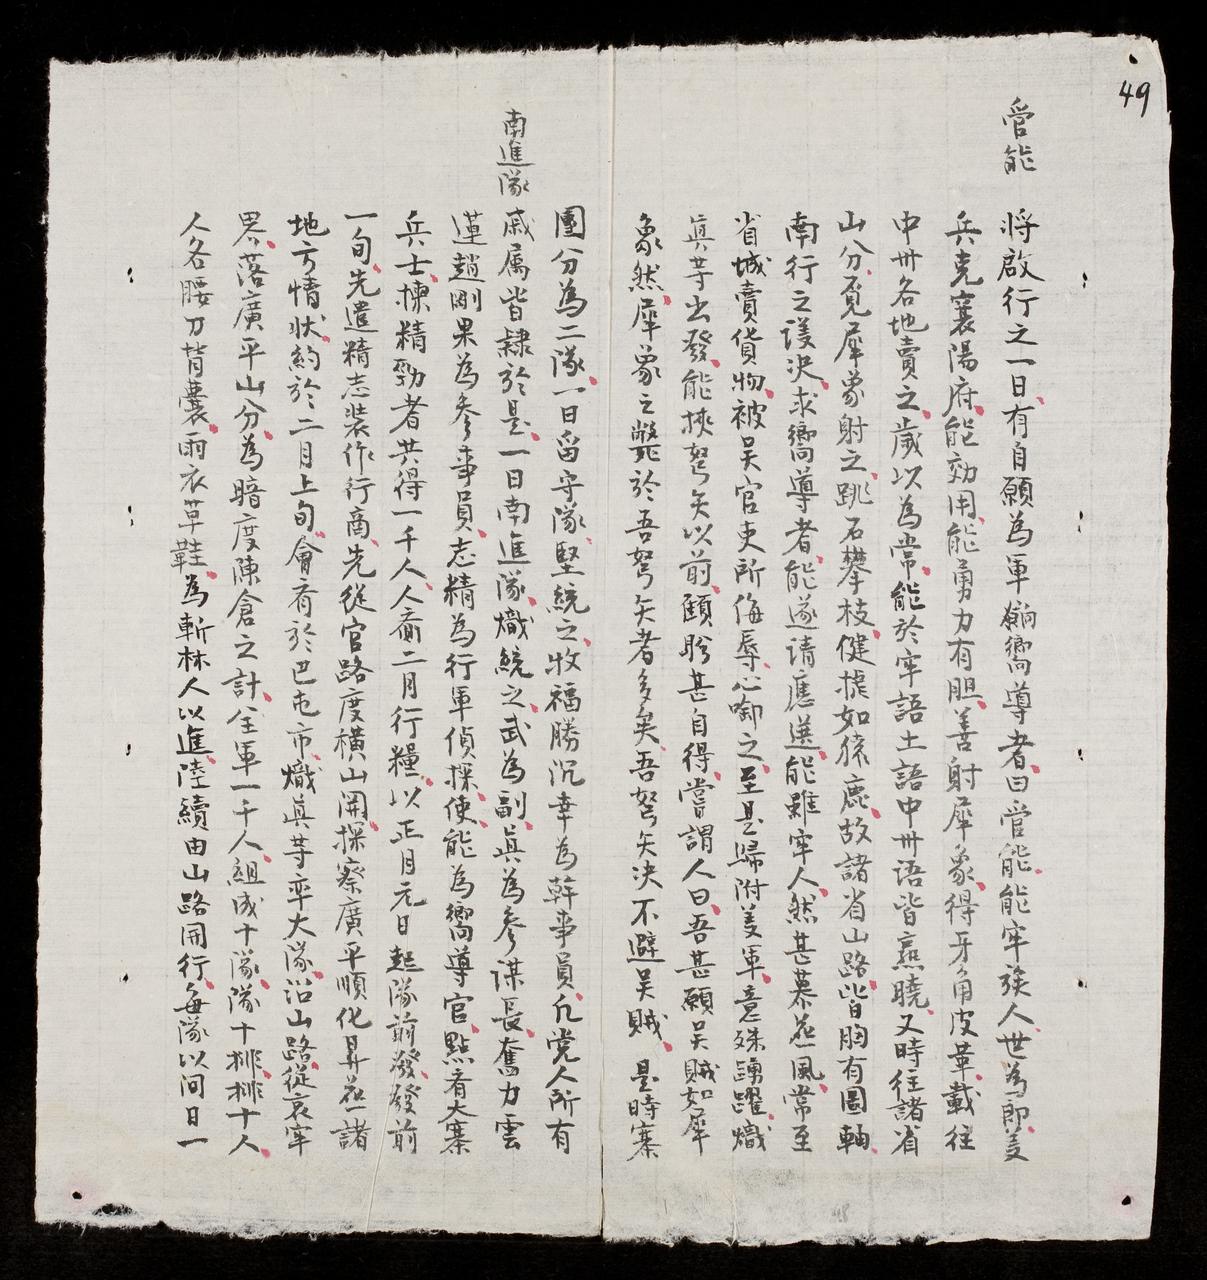 49
管能
將啟行之一日有自願為軍嚮導者曰管能能牢族人世為郎芰
兵克襄陽府能効用能勇力有胆善射犀象得牙角皮革載往
中州各地賣之歲以為常能於牢語土語中州语皆熹曉又時往諸省
山分覓犀象射之跳石攀枝健捷如猿鹿故諸省山路皆胸有圖軸
南行之議決求嚮導者能遂請應选能雖牢人然甚慕華風常至
省城賣貨物被吳官吏所侮辱心啣之至是歸附義軍意殊踴躍熾
真等出發能挾弩矢以前頤盼甚自得嘗謂人曰吾甚願吳賊如犀
象然犀象之斃於吾弩矢者多矣吾弩矢决不避吳賊 是時寨
團分為二隊一日留守隊堅統之牧福勝沉幸為幹事員凡党人所有
南進隊
戚属皆隸於是一日南進隊熾統之武為副真為參謀長奮力雲
蓮趙剛果為參事員志精為行軍偵探使能為嚮導官點看大寨
兵士揀精勁者共得一千人人齎二月行糧以正月元日起隊前發發前
一旬先遣精志裝作行商先從官路度横山関探察廣平順化昇華諸
地方情状約於二月上旬會看於巴屯市熾真等率大隊沿山路從哀牢
界落廣平山分為暗度陳倉之計全軍一千人組成十隊隊十排排十人
人各腰刀背囊雨衣草鞋為斬林人以進陸續由山路開行每隊以间日一